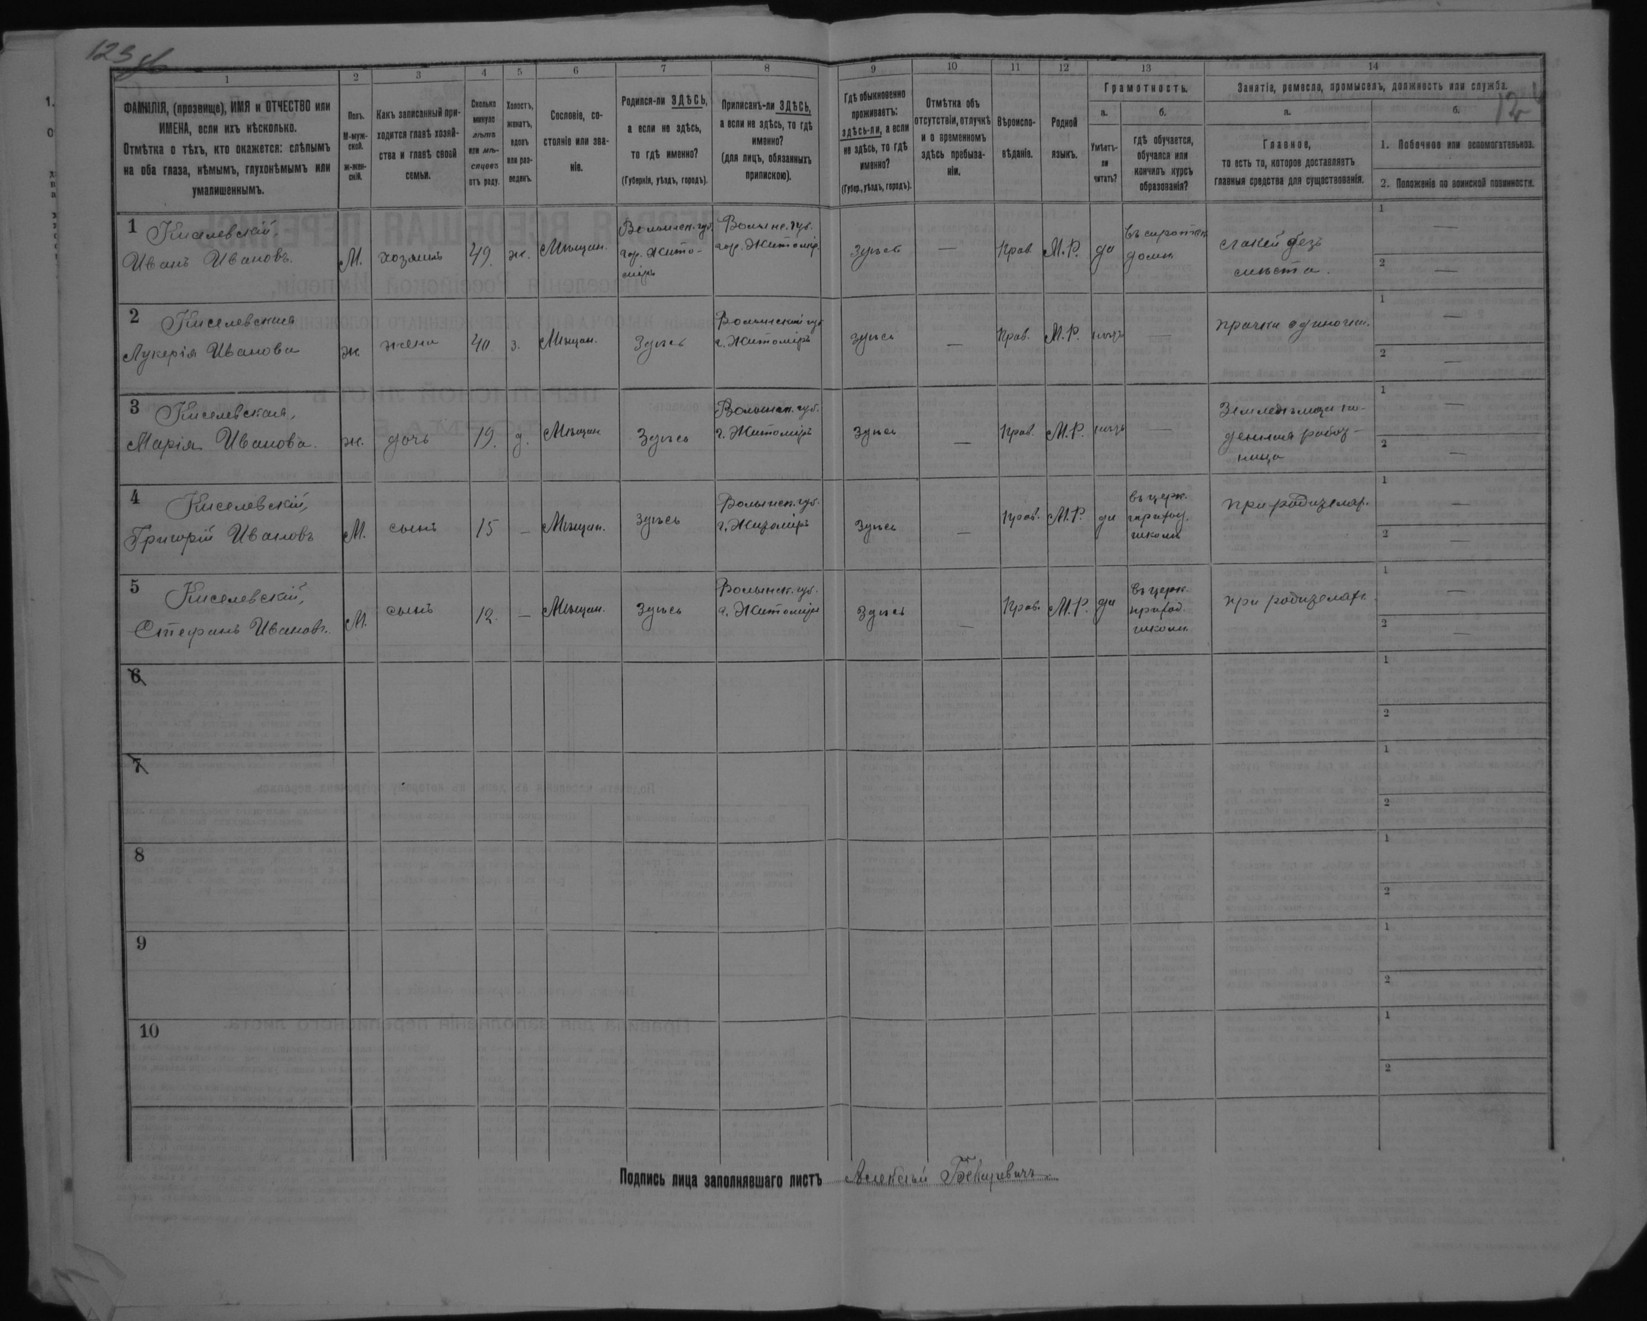 123 об
124
1 2 3 4 5 6 7 8 9 10 11 12 13 14
ФАМИЛІЯ, (прозвище), ИМЯ и ОТЧЕСТВО или
ИМЕНА, если ихъ нѣсколько.
Отмѣтка о тѣхъ, кто окажется: слѣпымъ
на оба глаза, нѣмымъ, глухонѣмымъ или
умалишеннымъ.
Полъ.
М-муж-
ской.
ж-жен-
скій.
Какъ записанный при-
ходится главѣ хозяй-
ства и главѣ своей
семьи.
Сколько
минуло
лѣтъ
или мѣ-
сяцевъ
отъ роду.
Холостъ,
женатъ,
вдовъ
или раз-
веденъ.
Сословіе, со-
стояніе или зва-
ніе.
Родился-ли ЗДѢСЬ,
а если не здѣсь,
то гдѣ именно?
(Губернія, уѣздъ, городъ).
Приписанъ-ли ЗДѢСЬ,
а если не здѣсь, то гдѣ
именно?
(для лицъ, обязанныхъ
припискою).
Гдѣ обыкновенно
проживаетъ:
здѣсь-ли, а если
не здѣсь, то гдѣ
именно?
(Губер., уѣздъ, городъ).
Отмѣтка объ
отсутствіи, отлучкѣ
и о временномъ
здѣсь пребыва-
ніи.
Вѣроиспо-
вѣданіе.
Родной
языкъ.
Грамотность.
а.
Умѣетъ-
ли
читать?
б.
гдѣ обучается,
обучался или
кончилъ курсъ
образованія?
Занятія, ремесло, промыселъ, должность или служба.
а.
Главное,
то есть то, которое доставляетъ
главныя средства для существованія.
б.
1. Побочное или вспомогательное.
2. Положеніе по воинской повинности.
1 Киселевскій,
Иванъ Ивановъ.
М. хозяинъ 49. ж. Мѣщан.
Волынск. губ.
гор. Жито-
міръ
Волынс. губ.
гор. Житомір.
Здѣсь — Прав. М. Р. да
въ сиротск.
домѣ
лакей безъ
мѣста.
1 —
2 —
2 Киселевская
Лукерія Иванова
ж жена 40 з. Мѣщан. Здѣсь
Волынской губ.
г. Житоміръ
здѣсь — Прав. М. Р. нѣтъ —
прачка одиночка.
1 —
2 —
3 Киселевская,
Марія Иванова.
ж. дочь 19. д. Мѣщан Здѣсь
Волынск. губ.
г. Житоміръ
Здѣсь — Прав. М. Р. нѣтъ —
1 —
2 —
4 Киселевскій,
Григорій Ивановъ
М. сынъ 15 — Мѣщан. Здѣсь
Волынск. губ.
г. Житоміръ
Здѣсь — Прав. М. Р. да
въ церк.
приход.
школѣ
при родителях.
1 —
2 —
5 Киселевскій,
Стефанъ Ивановъ.
М. сынъ 12. — Мѣщан. Здѣсь
Волынск. губ.
г. Житоміръ
Здѣсь — Прав. М. Р. да
въ церк.
приход.
школѣ
при родителях.
1
2 —
6 1
2
7 1
2
8 1
2
9 1
2
10 1
2
Подпись лица заполнявшаго листъ Алексѣй